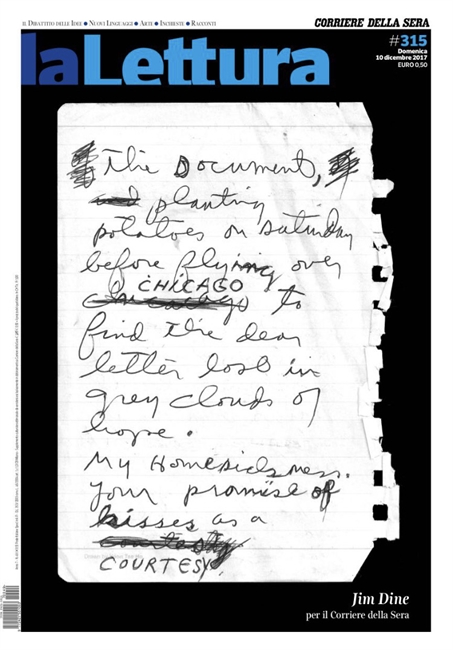 IL DIBATTITO DELLE IDEE • NUOVI LINGUAGGI • ARTE • INCHIESTE • RACCONTI
CORRIERE DELLA SERA
laLettura
#315
Domenica
10 dicembre 2017
EURO 0,50
The Document,
planting
potatoes on Saturday
before flying over
CHICAGO
to
find the dear
letter lost in
grey clouds of
hope.
My Homesickness.
your promise of
kisses as a
COURTESY
Jim Dine
per il Corriere della Sera